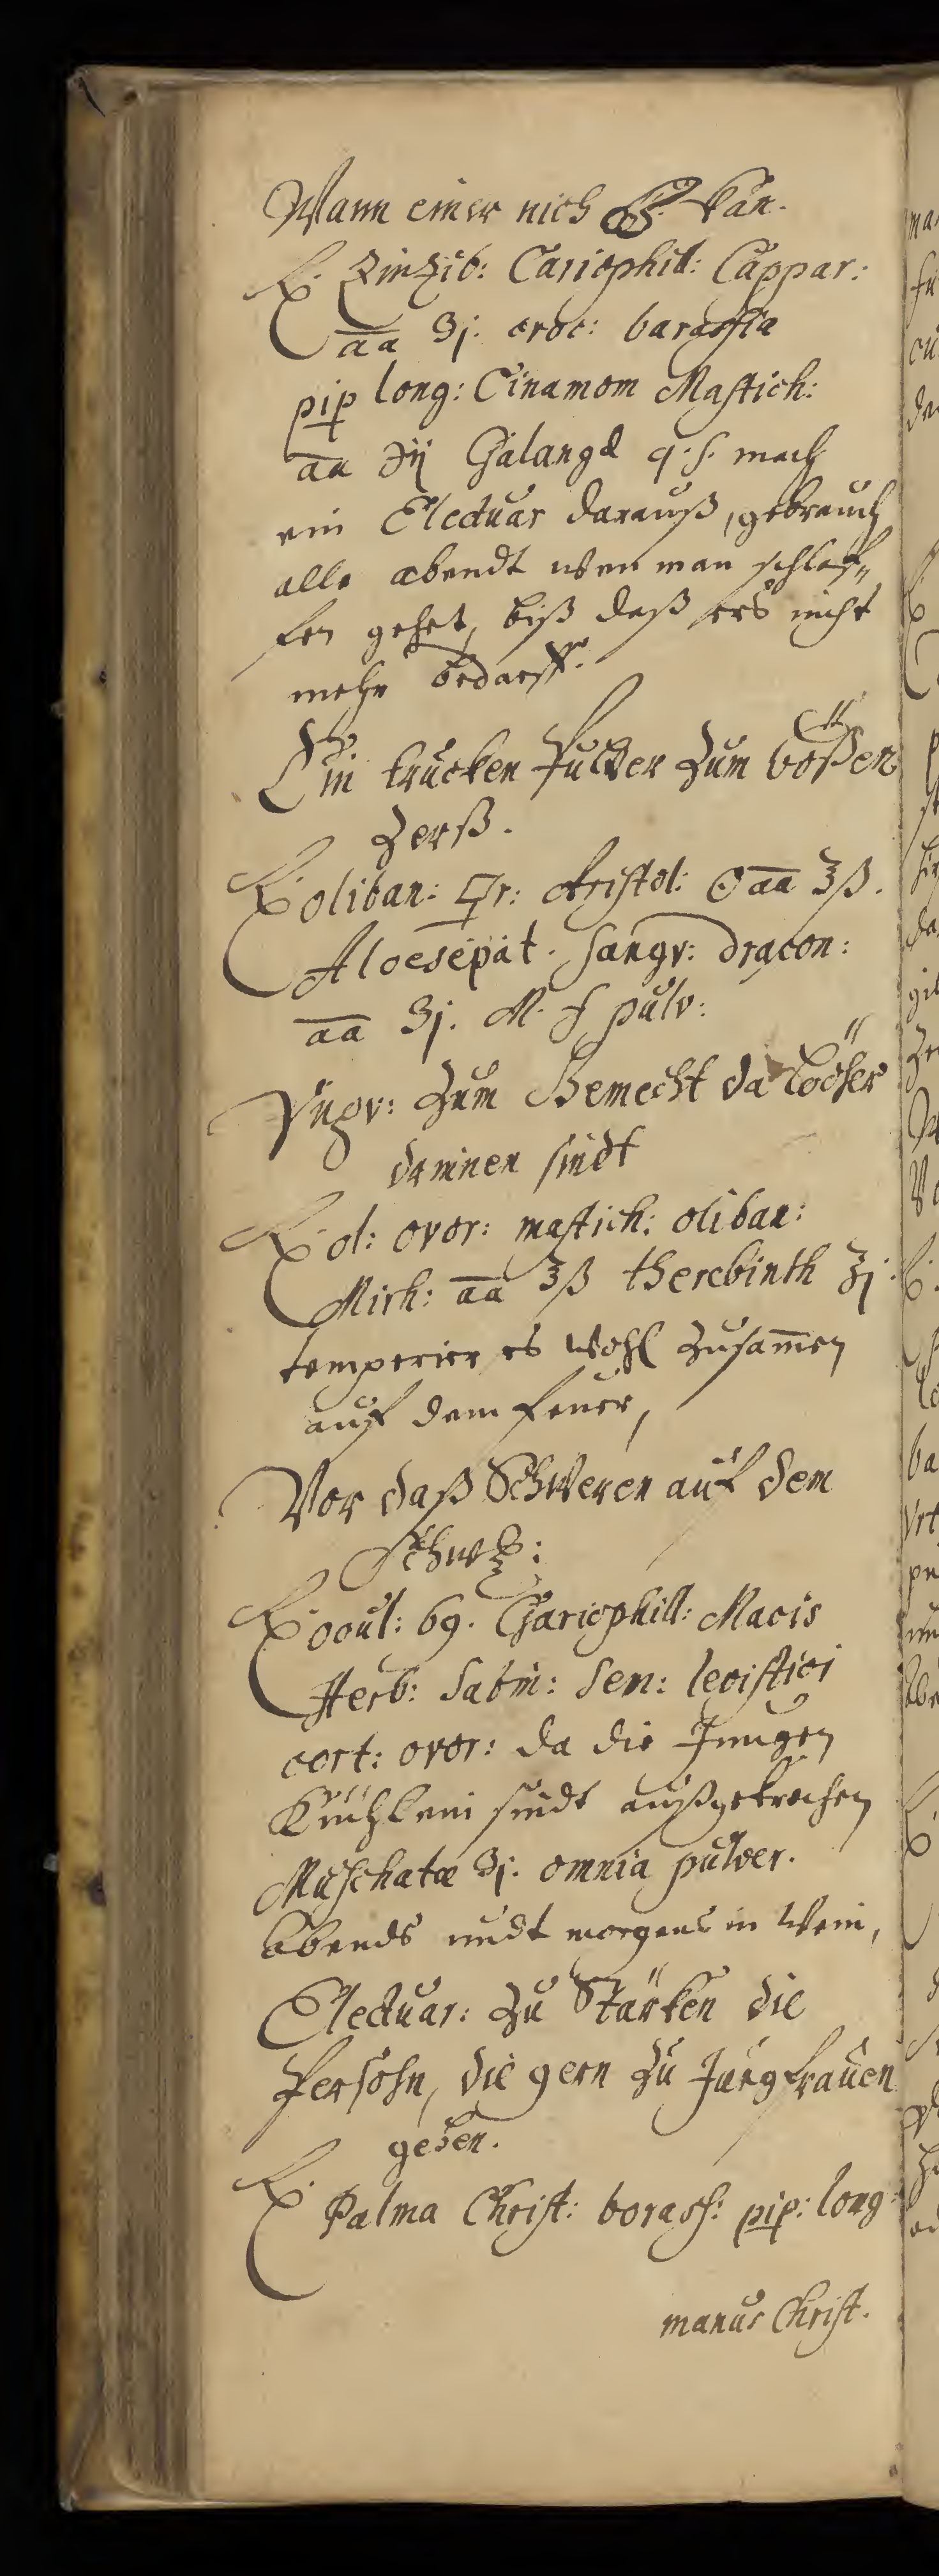 Wann einer nich kan.
℞. Zinzib: Cariophil: Cappar:
aa ʒj. croc: barassia
pip long: Cinamom Mastich:
aa ℈ij Galangæ q. s. mach
ein Electuar darauß, gebrauch
alle abendt wen man schlaf„
fen gehet, biß daß ers nicht
mehr bedarff.
Ein trucken Pulver zum bößen
Zerß.
℞ oliban: Aristol: aa ʒß.
Aloesepat. Sangv: dracon:
aa ʒj. M. f pulv:
Vngv: zum Gemecht da Löcher
drinnen sindt
℞. ol: ovor: mastich: oliban:
Mirh: aa ʒß therebinth ʒj.
temperier es wohl zusam̄en
auf dem feuer,
Vor daß Schweren auf dem
℞ ocul: 69. Chariophill: Macis
Herb: Sabin: Sem: levistici
cort: ovor: da die Jungen
Küchlein sindt außgekrochen
Muschatæ ʒj. omnia pulver.
Abends undt morgens in Wein,
Electuar: zu Stärken die
Persohn, die gern zu Jungfrauen
gehen.
℞. Palma Christ: borass: pip: long:
manus Christ.